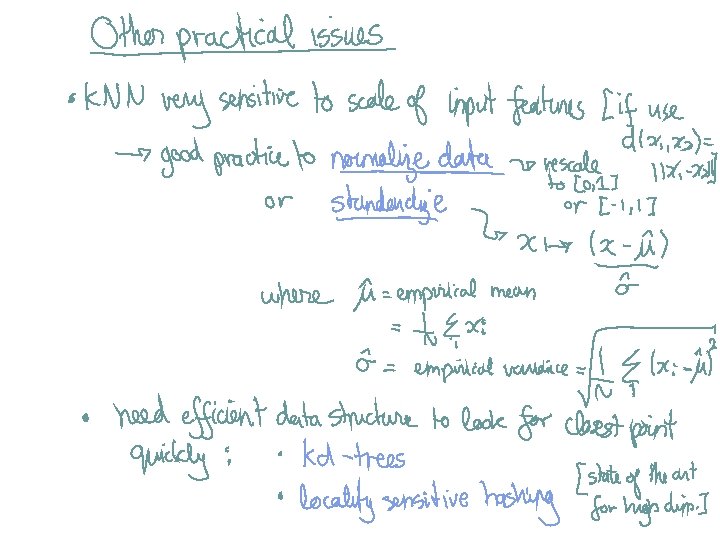 Other practical issues
• kNN very sensitive to scale of input features [if use d(x₁,x₂)= ||x₁-x₂||]
→ good practice to normalize data → rescale to [0,1] or [-1,1]
or standardize
→ x ↦ (x - μ̂) / σ̂
where μ̂ = empirical mean
= 1/N Σᵢ xᵢ
σ̂ = empirical variance = √(1/N Σᵢ (xᵢ - μ̂)²)
• need efficient data structure to look for closest point
quickly : • kd-trees
• locality sensitive hashing
[state of the art
for high dim.]